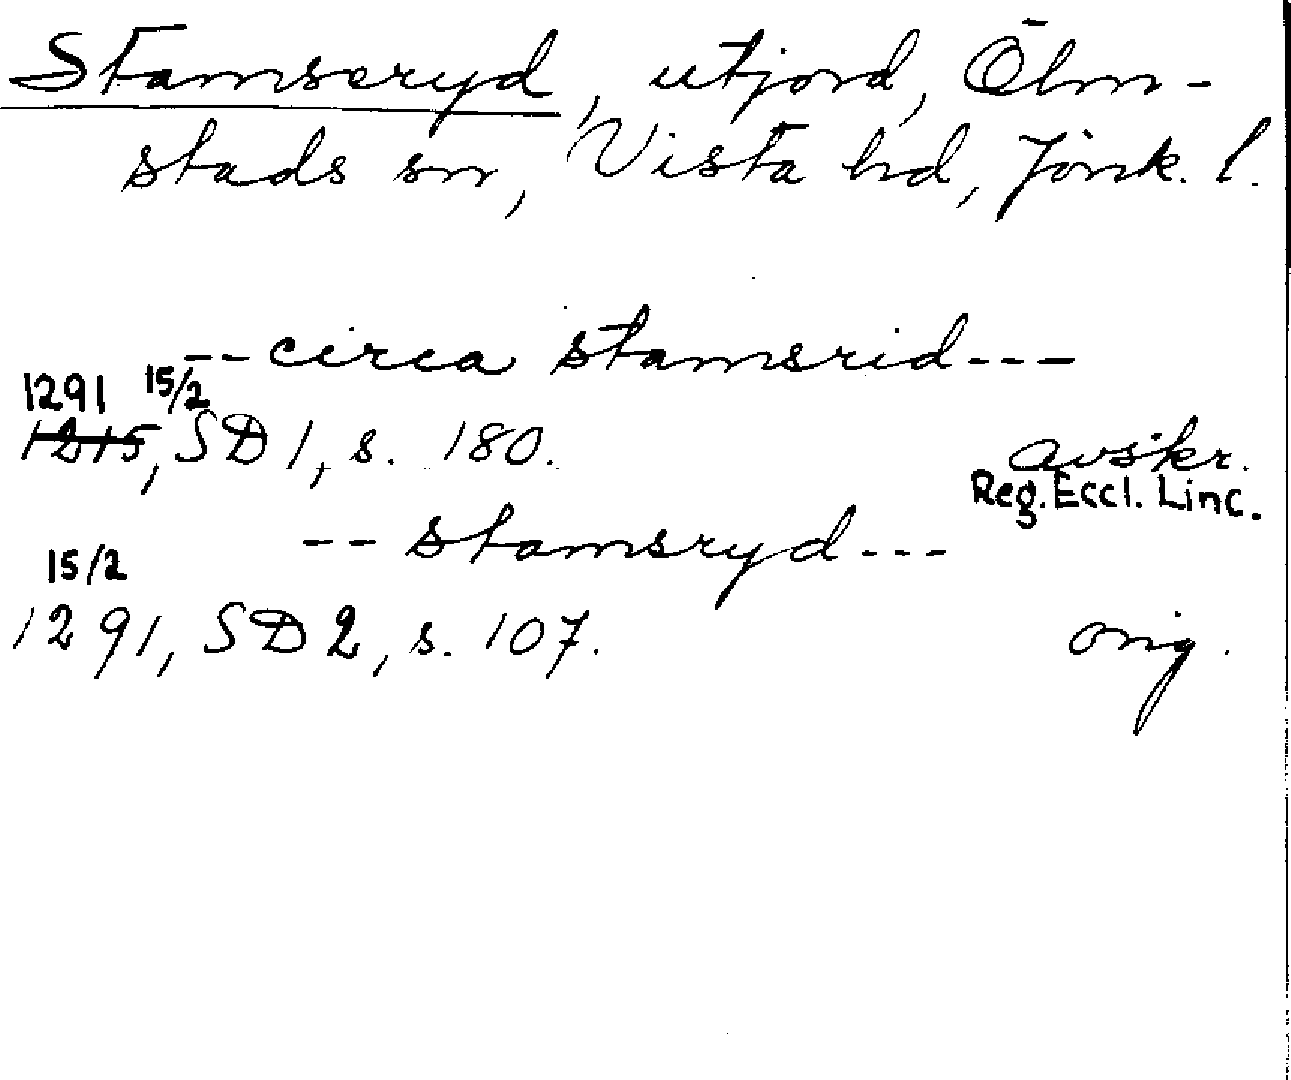 Stamseryd, utjord, Ölm-
stads sn, Vista hd, Jönk. l.
--circa stamsrid---
1291 15/2
1215, SD 1, s. 180. avskr.
Reg. Eccl. Linc.
--stamsryd---
15/2
1291, SD 2, s. 107. orig.